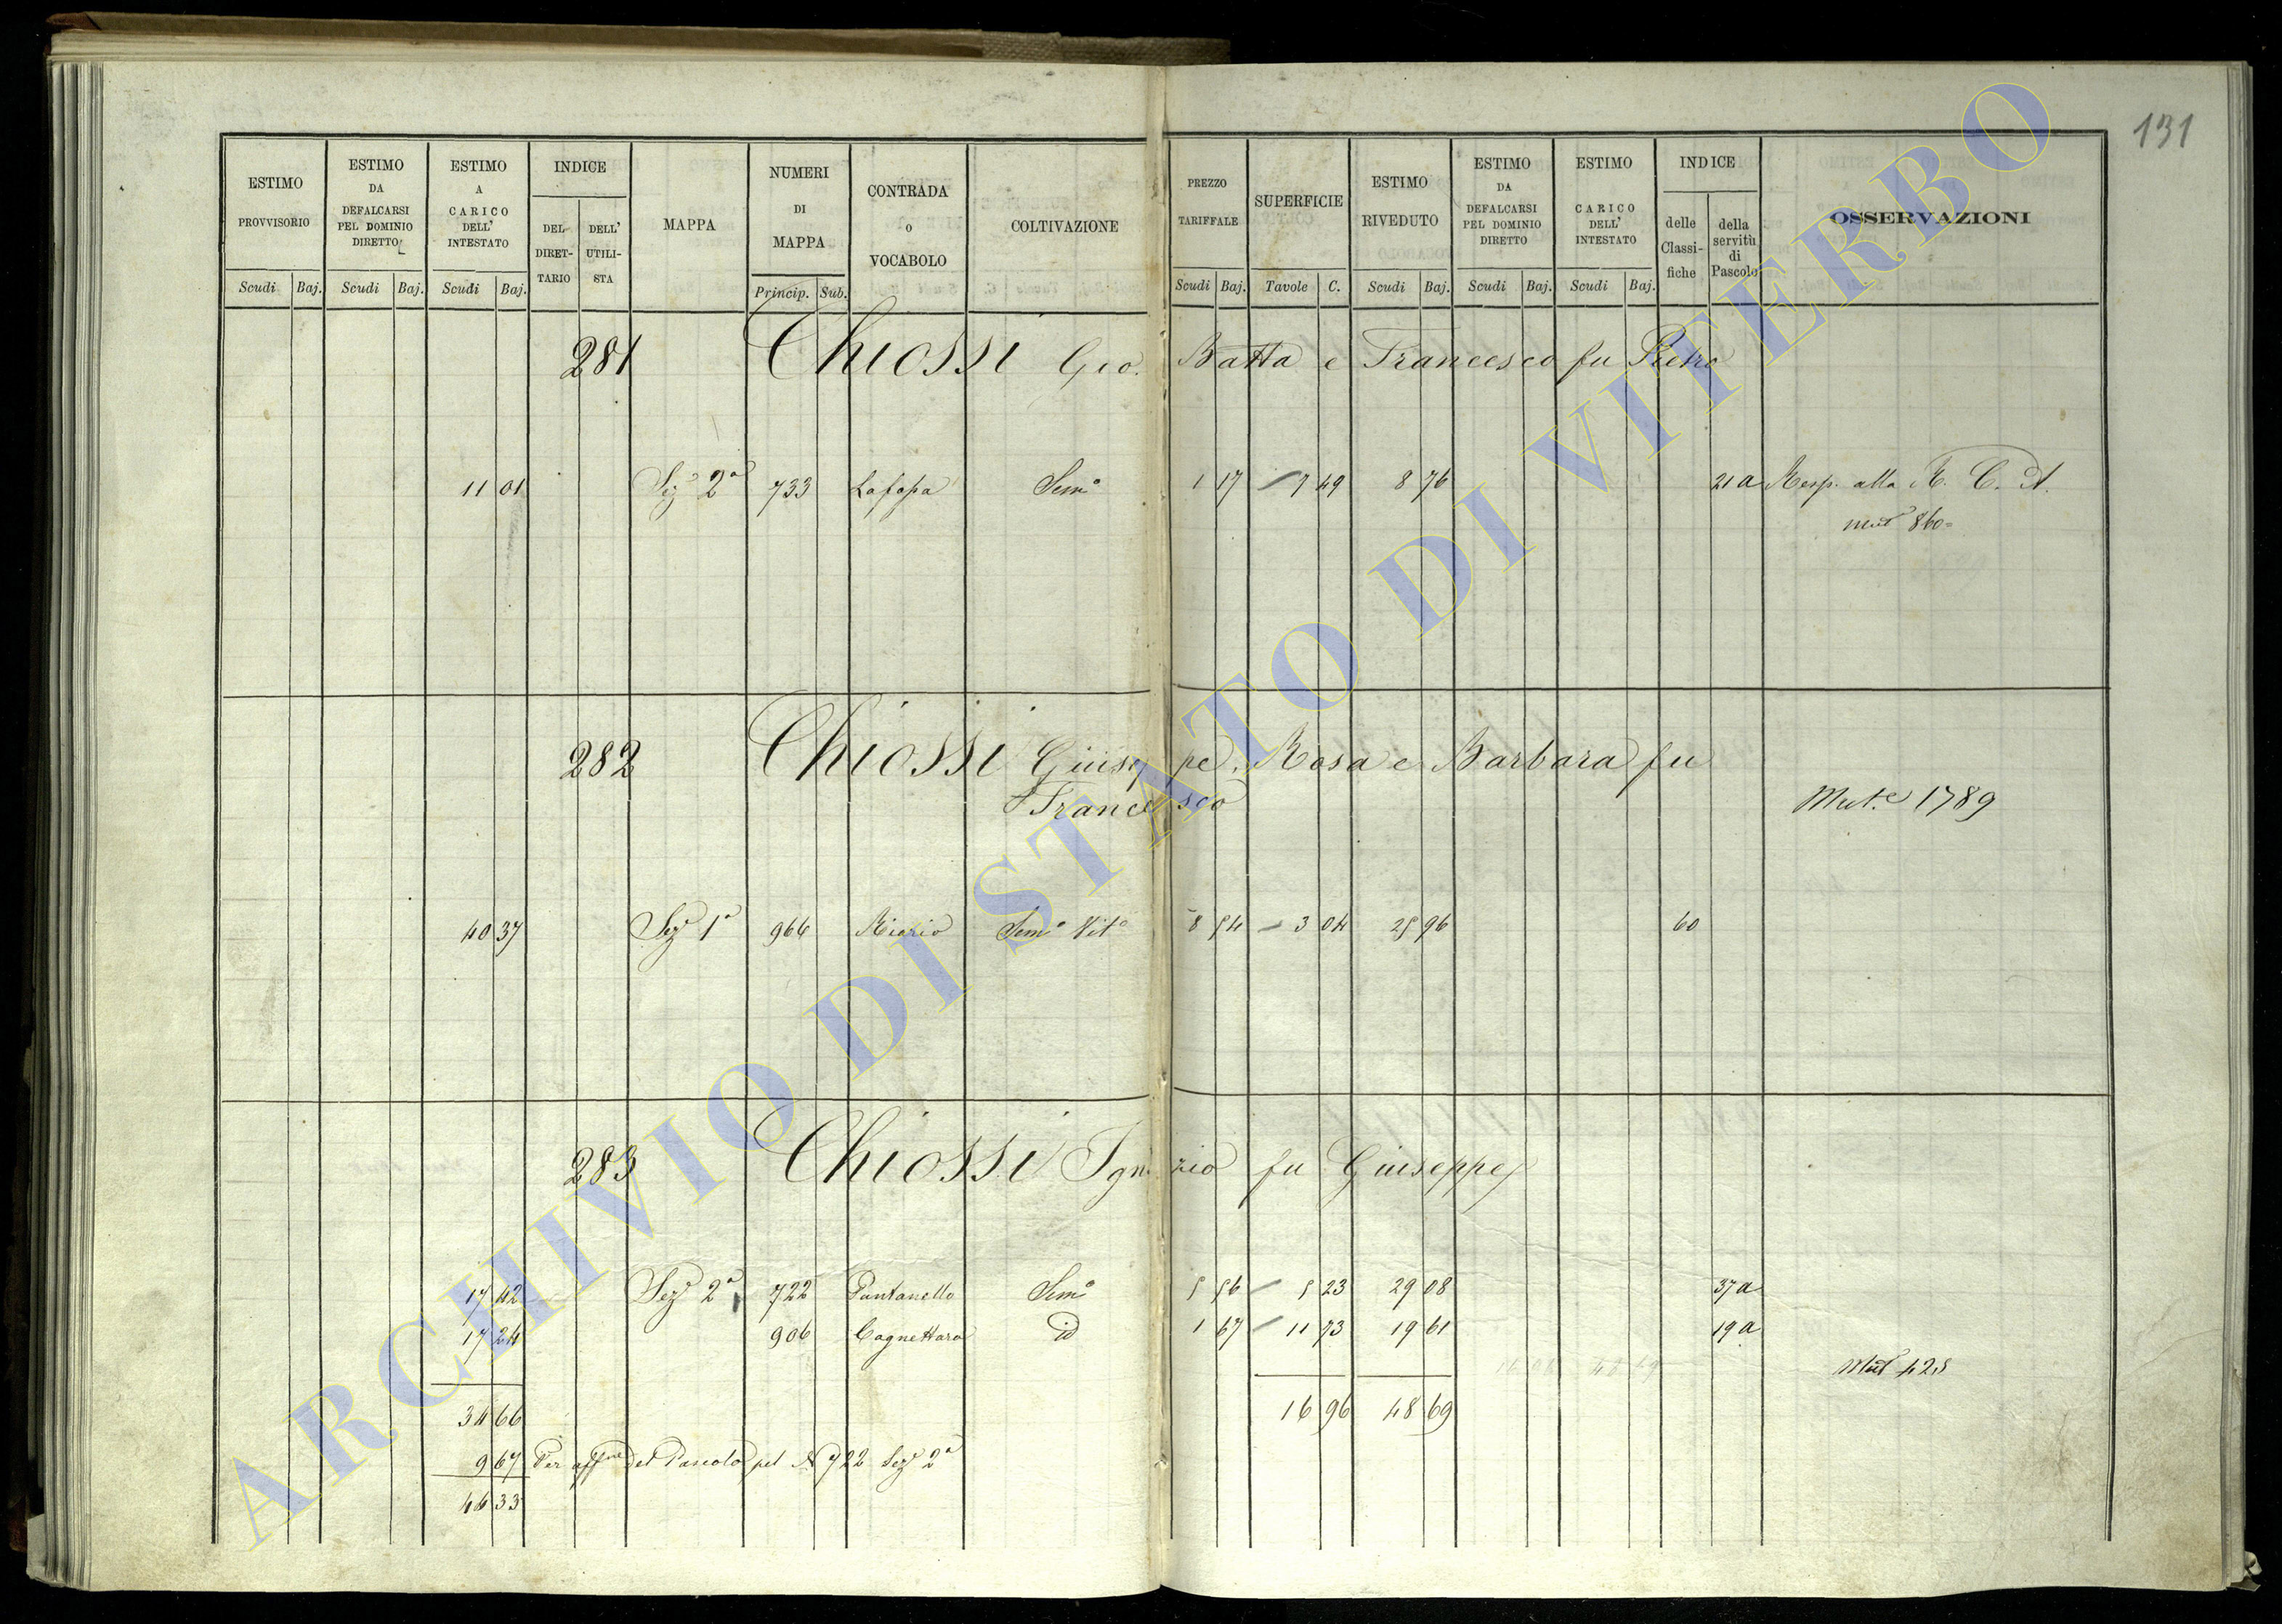 131
ESTIMO PROVVISORIO
ESTIMO DA DEFALCARSI PEL DOMINIO DIRETTO
ESTIMO A CARICO DELL' INTESTATO
INDICE
DEL DIRET-TARIO
DELL' UTILI-STA
MAPPA
NUMERI DI MAPPA
CONTRADA O VOCABOLO
COLTIVAZIONE
PREZZO TARIFFALE
SUPERFICIE
ESTIMO RIVEDUTO
ESTIMO DA DEFALCARSI PEL DOMINIO DIRETTO
ESTIMO A CARICO DELL' INTESTATO
INDICE
delle Classi-fiche
della servitù di Pascolo
OSSERVAZIONI
Scudi Baj. Scudi Baj. Scudi Baj. Princip. Sub. Scudi Baj. Tavole C. Scudi Baj. Scudi Baj. Scudi Baj.
281 Chiossi Gio. Batta e Francesco fu Pietro
11 01 Sez 2a 733 Sem.o 1 17 7 49 8 76 21 a Resp. alla R. C. A.
mut 860=
282 Chiossi Giuseppe, Rosa e Barbara fu
Francesco
Mut.e 1789
40 37 Sez 1a 966 Sem.o Vit.o 8 54 3 04 25 96 60
283 Chiossi Ignazio fu Giuseppe
17 42 Sez 2a 722 Pantanello Sem.o 5 56 5 23 29 08 37 a
17 24 906 Cagnettara id 1 67 11 73 19 61 19 a
Mut 425
34 66 16 96 48 69
9 67 Per aff.ne del Pascolo pel N 722 Sez 2a
44 33
ARCHIVIO DI STATO DI VITERBO